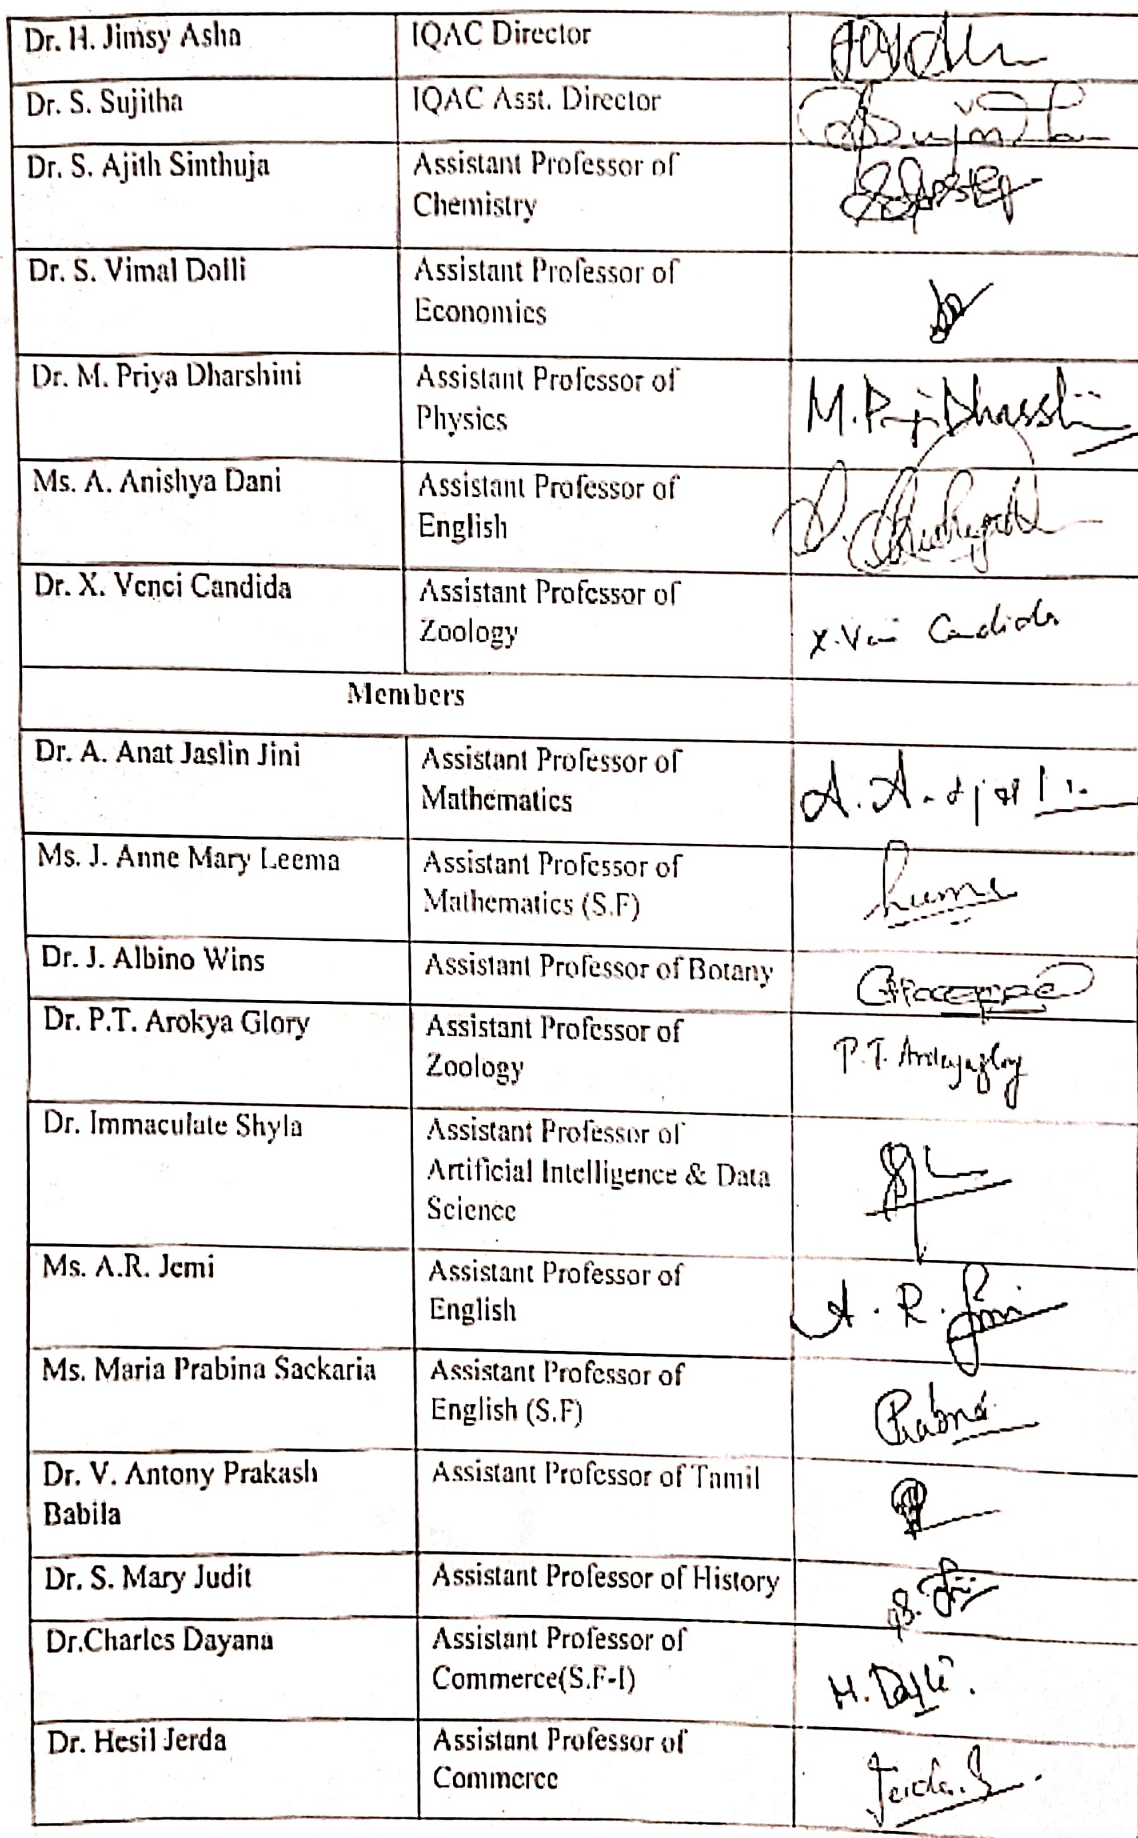 Dr. H. Jimsy Asha
IQAC Director
Dr. S. Sujitha
IQAC Asst. Director
Dr. S. Ajith Sinthuja
Assistant Professor of
Chemistry
Dr. S. Vimal Dolli
Assistant Professor of
Economics
Dr. M. Priya Dharshini
Assistant Professor of
Physics
Ms. A. Anishya Dani
Assistant Professor of
English
Dr. X. Venci Candida
Assistant Professor of
Zoology
Candida
Members
Dr. A. Anat Jaslin Jini
Assistant Professor of
Mathematics
Ms. J. Anne Mary Leema
Assistant Professor of
Mathematics (S.F)
Dr. J. Albino Wins
Assistant Professor of Botany
Dr. P.T. Arokya Glory
Assistant Professor of
Zoology
P.T.
Dr. Immaculate Shyla
Assistant Professor of
Artificial Intelligence & Data
Science
Ms. A.R. Jemi
Assistant Professor of
English
A. R. Jemi
Ms. Maria Prabina Sackaria
Assistant Professor of
English (S.F)
Dr. V. Antony Prakash
Babila
Assistant Professor of Tamil
Dr. S. Mary Judit
Assistant Professor of History
Dr.Charles Dayana
Assistant Professor of
Commerce(S.F-I)
Dr. Hesil Jerda
Assistant Professor of
Commerce